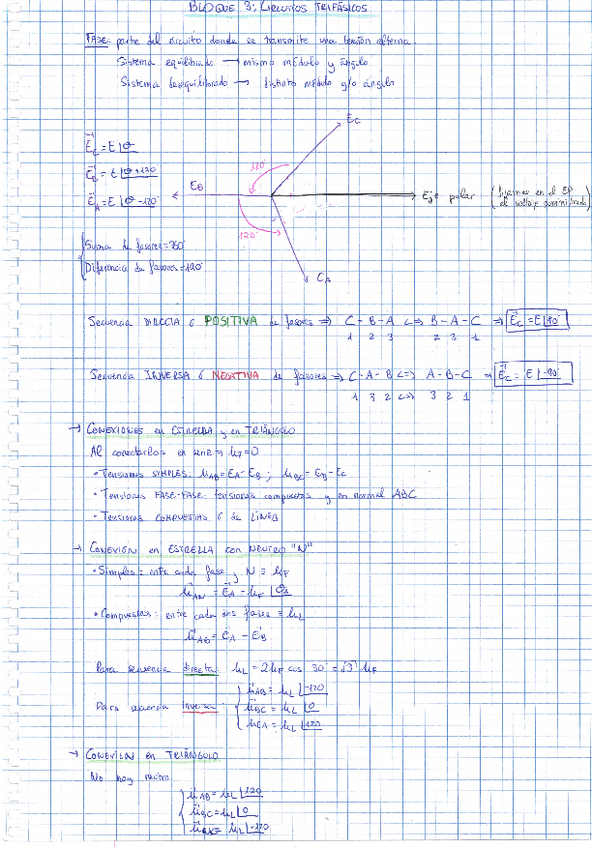 BLOQUE 3: CIRCUITOS TRIFÁSICOS
FASE: parte del circuito donde se transmite una tensión alterna.
Sistema equilibrado → mismo módulo y ángulo
Sistema desequilibrado → distinto módulo y/o ángulo
E_C
E_C = E |θ
E_B = E |θ+120
E_A = E |θ-120°
E_B
120°
120°
Eje polar
C_A
Suma de fasores = 360°
Diferencia de fasores = 120°
Secuencia DIRECTA ó POSITIVA de fasores ⇒ C - B - A <=> B - A - C ⇒ E_C = E |90°
1 2 3 2 3 1
Secuencia INVERSA ó NEGATIVA de fasores ⇒ C - A - B <=> A - B - C ⇒ E_C = E |-90°
1 3 2 <=> 3 2 1
→ CONEXIONES en ESTRELLA y en TRIÁNGULO
Al conectarlos en serie → μ_T = 0
• Tensiones SIMPLES: μ_AB = E_A - E_B ; μ_BC = E_B - E_C
• Tensiones FASE-FASE: tensiones compuestas y en normal ABC
• Tensiones COMPUESTAS ó de LÍNEA
→ CONEXIÓN en ESTRELLA con NEUTRO "N"
• Simples: entre cada fase y N = μ_F
μ_AN = E_A = μ_F
• Compuestas: entre cada dos fases = μ_L
μ_AB = E_A - E_B
Para secuencia directa: μ_L = 2μ_F cos 30° = √3 μ_F
Para secuencia inversa: μ_AB = μ_L |-120
μ_BC = μ_L |0
μ_CA = μ_L |120
→ CONEXIÓN en TRIÁNGULO
No hay neutro
μ_AB = μ_L |120
μ_BC = μ_L |0
μ_L |-120